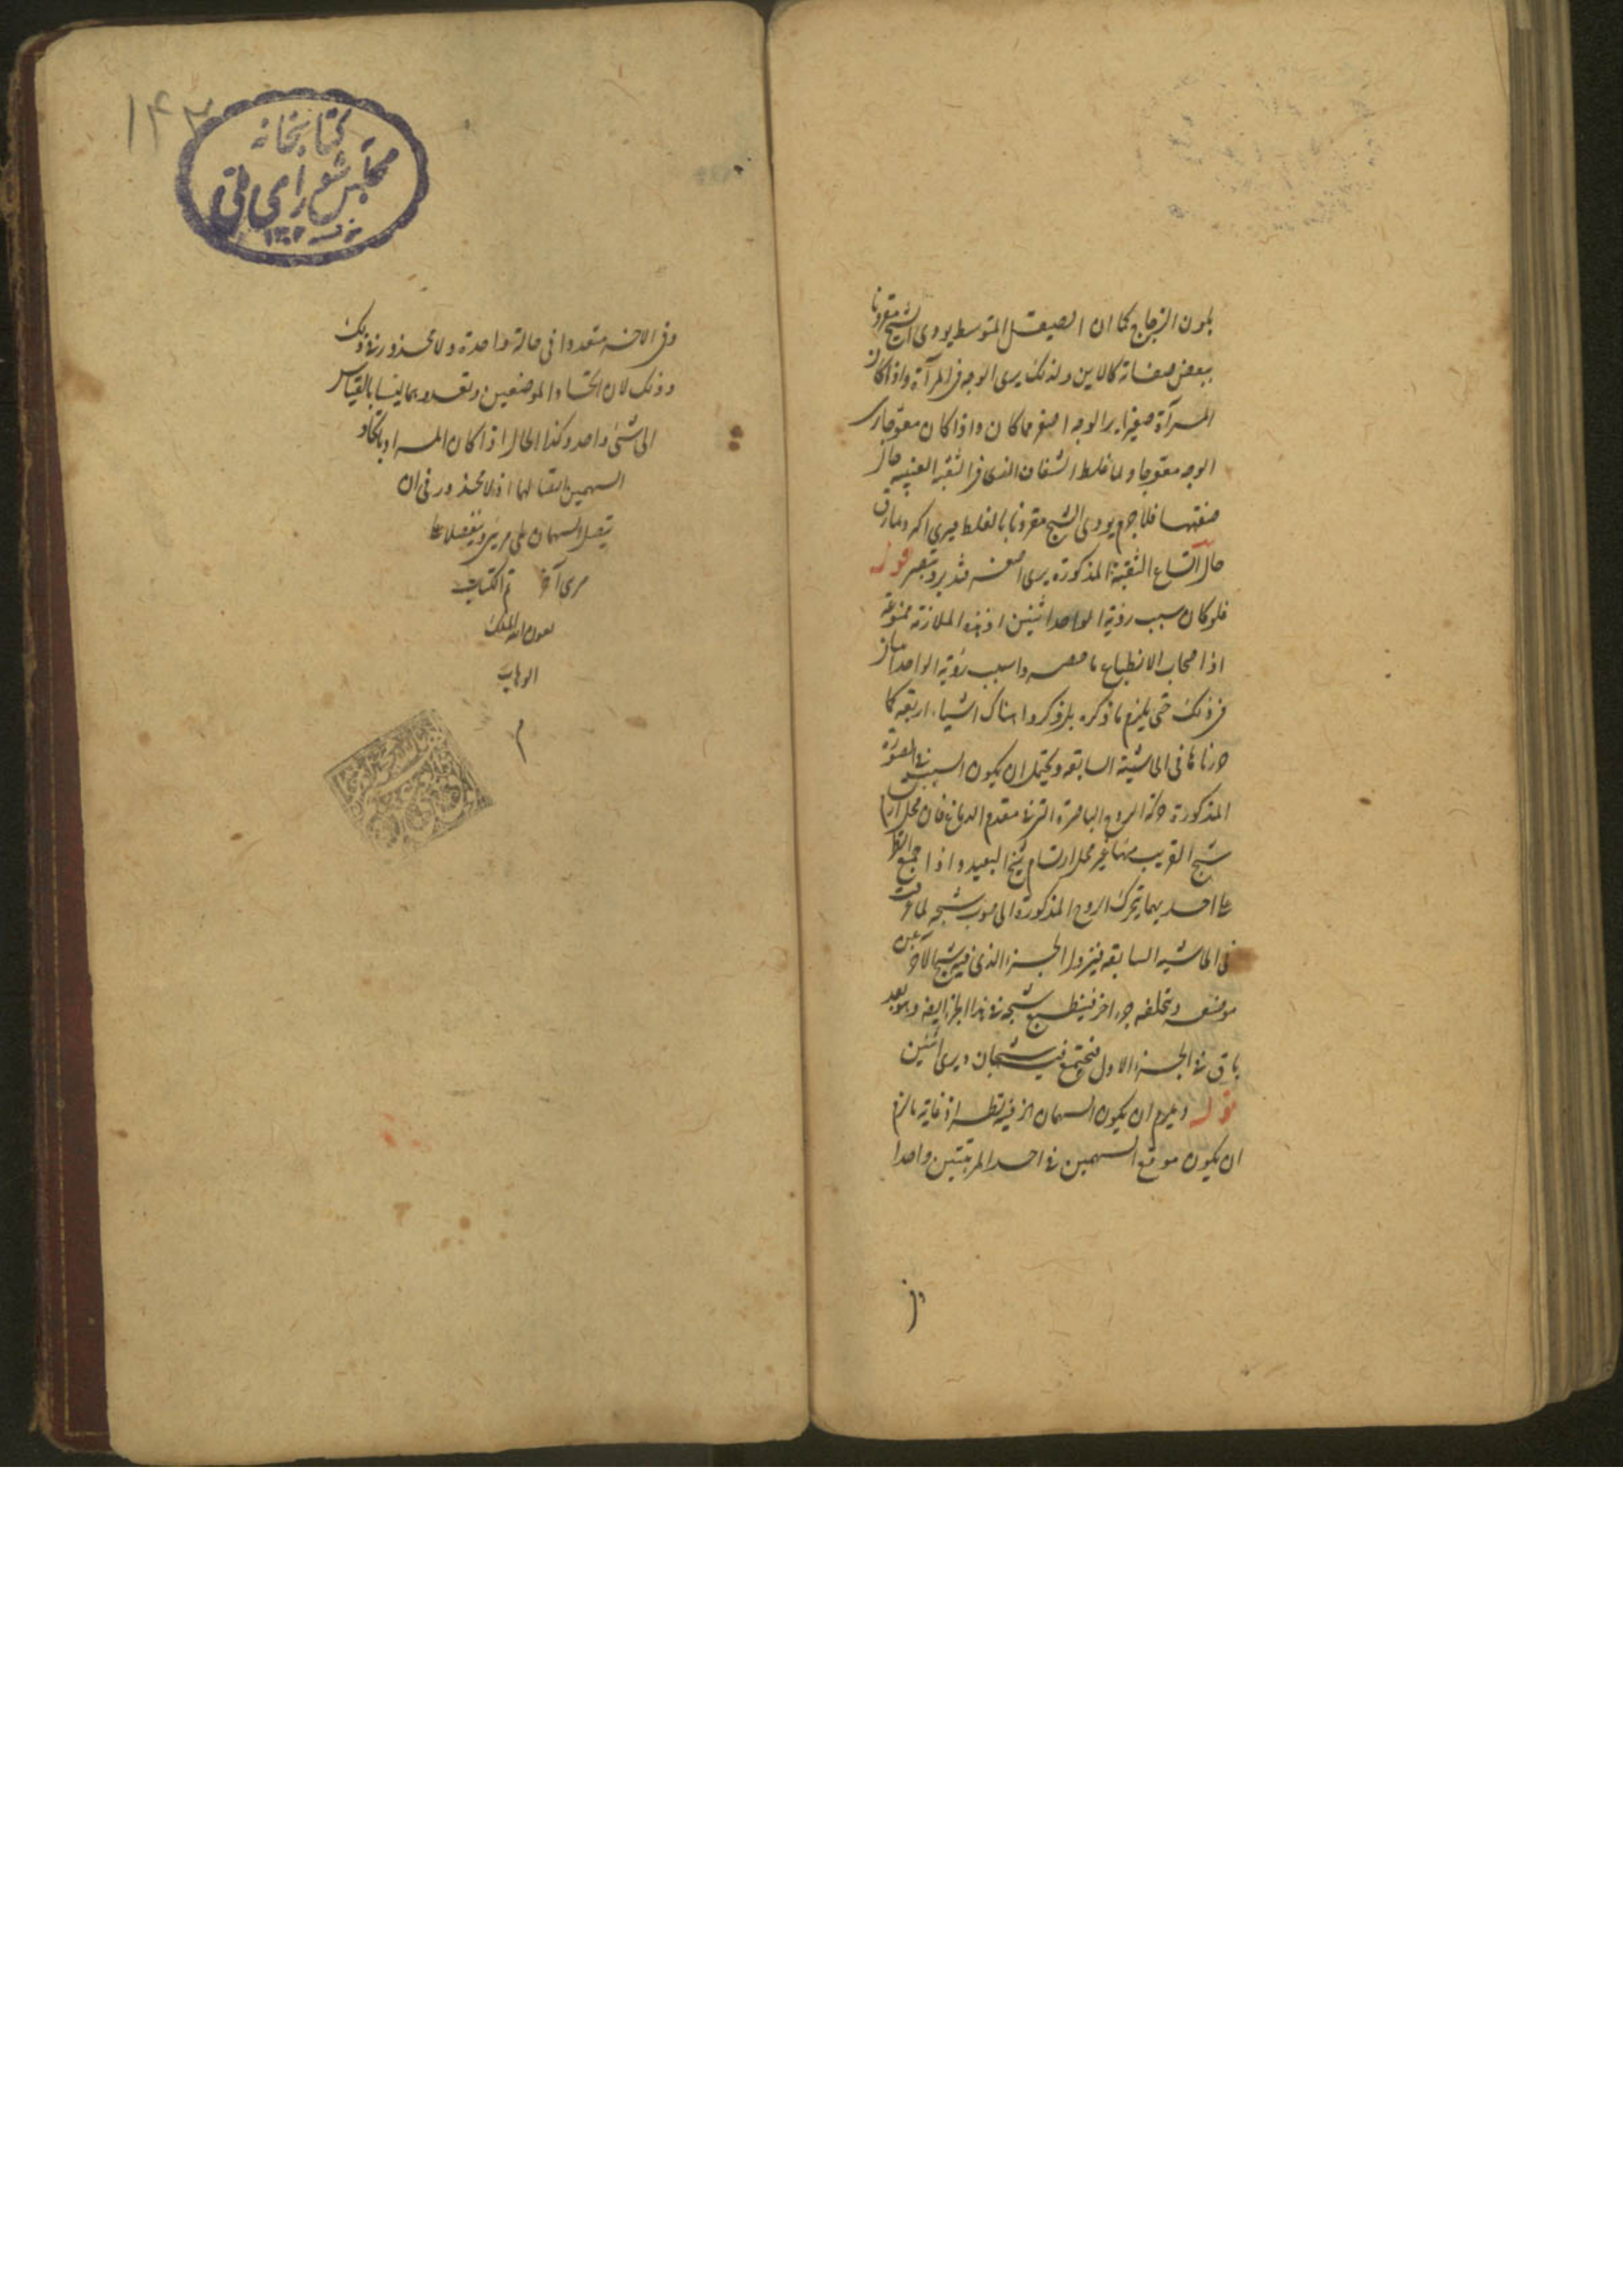 بلون الزجاج كما ان الصيقل المتوسط يودى الشبح مقرونا
ببعض صفاته كالاين ولذلك يرى الوجه فى المرآة واذا كان
المرآة صغيرا يرى الوجه اصغر مما كان واذا كان معوجا يرى
الوجه معوجا ولما غلط الشفاف الذى فى الثقبة العنبيه حال
ضيقها فلا جرم يودى الشبح مقرونا بالغلط فيرى اكبر ولما رق
حال اتساع الثقبة المذكورة يرى اصغر فتدبر وتبصر قوله
فلو كان سبب روية الواحد اثنين اذ هذه الملازمة ممنوعة
اذ اصحاب الانطباع ما حصروا سبب رؤية الواحد
فى ذلك حتى يلزم ما ذكره بل ذكروا هناك اشياء اربعة كما
حررناها فى الحاشية السابقه ويحتمل ان يكون السبب فى الصورة
المذكورة حركة الروح الباصرة التى فى مقدم الدماغ فان محل ارتسام
شبح القريب منها غير محل ارتسام شبح البعيد واذا جمع النظر
على احديهما يتحرك الروح المذكورة الى صوب شبحه لما عرفت
فى الحاشيه السابقه فيزول الجزء الذى فيه شبح الآخر عن
موضعه ويخلفه جزء اخر فينطبع شبحه فى هذا الجزء ايضا وهو بعد
باق فى الجزء الاول فيجتمع فيه شبحان ويرى اثنين
قوله ويلزم ان يكون السهمان الخ فيه نظر اذ غاية ما لزم
ان يكون موقع السهمين فى احد المرتبتين واحدا
وفى
١۴٢
كتابخانه
مجلس شوراى ملى
١٣٠٢
وفى الاخر متعددا فى حالة واحدة ولا محذور فى ذلك
وذلك لان اتحاد الموضعين وتعددهما ليسا بالقياس
الى شئ واحد وكذا الحال اذا كان المراد باتحاد
السهمين اتصالهما اذ لا محذور فى ان
يتصل السهمان على مرئى وينفصلا على
مرى آخر تم الكتاب
بعون الله الملك
الوهاب
م